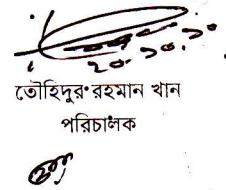 ২০.১০.১০
তৌহিদুর রহমান খান
পরিচালক